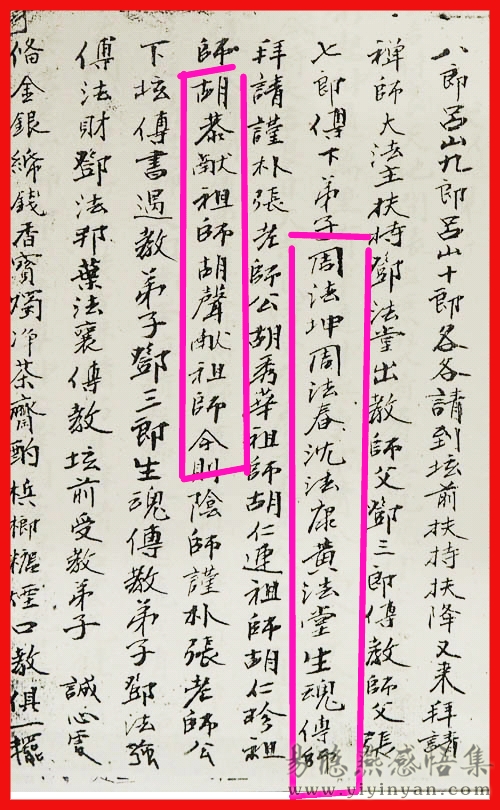 八郎呂山九郎呂山十郎各各請到坛前扶持扶降又来拜請
禅師大法主扶持鄧法堂出教師父鄧三郎傳教師父張
七郎傳下弟子周法坤周法春沈法康黄法堂生魂傳師
拜請謹朴張老師公胡秀華祖師胡仁連祖師胡仁珍祖
師胡恭猷祖師胡聲猷祖師今則陰師謹朴張老師公
下坛傳書過教弟子鄧三郎生魂傳教弟子鄧法強
傳法財鄧法邦葉法襄傳教坛前受教弟子 誠心虔
俻金銀綿錢香寳燭净茶齋酌梹榔煙口教俱一
易隐燕感悟集
www.yiyinyan.com